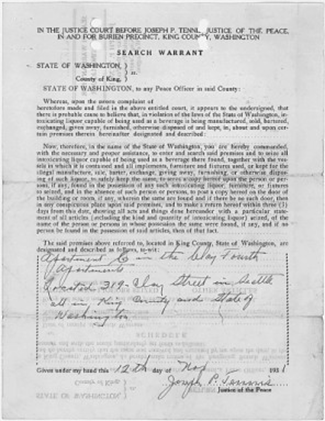 IN THE JUSTICE COURT BEFORE JOSEPH P. TENNI, JUSTICE OF THE PEACE,
IN AND FOR BURIEN PRECINCT, KING COUNTY, WASHINGTON
SEARCH WARRANT
STATE OF WASHINGTON, )
) ss.
County of King, )
STATE OF WASHINGTON, to any Peace Officer in said County:
Whereas, upon the sworn complaint of
heretofore made and filed in the above entitled court, it appears to the undersigned, that
there is probable cause to believe that, in violation of the laws of the State of Washington, in-
toxicating liquor capable of being used as a beverage is being manufactured, sold, bartered,
exchanged, given away, furnished, otherwise disposed of and kept, in, about and upon cer-
tain premises therein hereinafter designated and described:
Now, therefore, in the name of the State of Washington, you are hereby commanded,
with the necessary and proper assistance, to enter and search said premises and to seize all
intoxicating liquor capable of being used as a beverage there found, together with the ves-
sels in which it is contained and all implements, furniture and fixtures used, or kept for the
illegal manufacture, sale, barter, exchange, giving away, furnishing, or otherwise dispos-
ing of such liquor, to safely keep the same, to serve a copy of this warrant upon the person or per-
sons, if any, found in the possession of any such intoxicating liquor, furniture, or fixtures
so seized, and in the absence of such person or persons, to post a copy hereof on the door of the
building or room, if any, wherein the same are found and if there be no such door, then
in any conspicuous place upon said premises, and to make a return hereof within three (3)
days from this date, showing all acts and things done hereunder with a particular state-
ment of all articles (including the kind and quantity of intoxicating liquor) seized, of the
name of the person or persons in whose possession the same were found, if any, and if no
person be found in the possession of said articles, then of that fact.
The said premises above referred to, located in King County, State of Washington, are
designated and described as follows, to-wit:
Apartment 6 in the Clay Fourth
Apartments
Located 319 Clay Street in Seattle
all in King County and State of
Washington
Given under my hand this 12th day of Nov 193
Joseph P. Tenni
Justice of the Peace